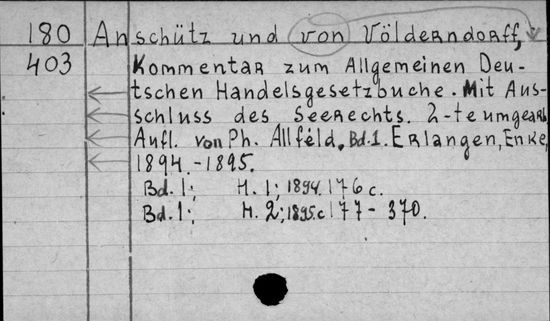 180 Anschütz und von Völderndorff,
403 Kommentar zum Allgemeinen Deu-
tschen Handelsgesetzbuche. Mit Aus-
schluss des Seerechts. 2-te umgearb.
Aufl. von Ph. Allféld. Bd.1. Erlangen, Enke,
1894.-1895.
Bd. 1; H. 1; 1894. 176 c.
Bd. 1; H. 2; 1895. c 177 - 370.